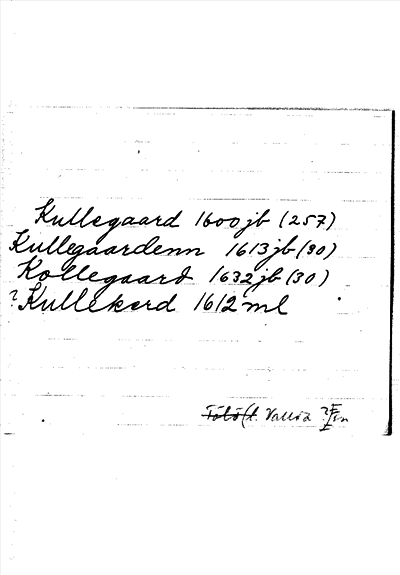 Kullegaard 1600 jb (257)
Kullegaardenn 1613 jb (30)
Kollegaard 1632 jb (30)
? Kullekerd 1612 ml
Vallda